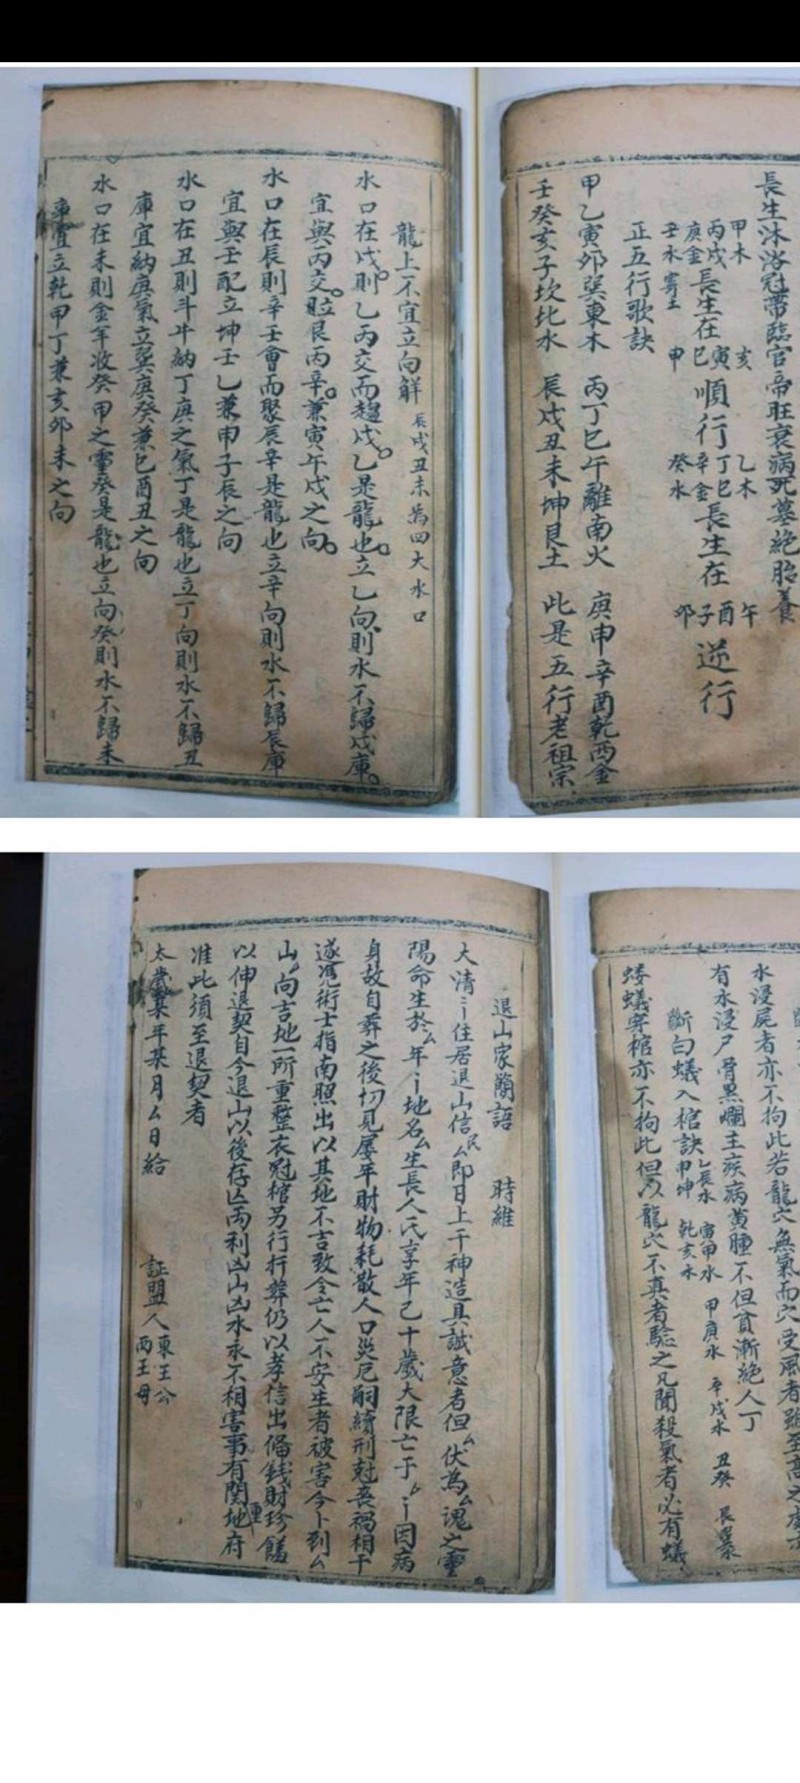 長生沐浴冠帶臨官帝旺衰病死墓絕胎養
甲木 丙戊 庚金 壬水 長生在 亥 寅 巳 申 順行 乙木 丁巳 辛金 癸水 長生在 午 酉 子 卯 逆行
正五行歌訣
甲乙寅卯巽東木 丙丁巳午離南火 庚申辛酉乾西金
壬癸亥子坎北水 辰戌丑未坤艮土 此是五行老祖宗
龍上不宜立向解 辰戌丑未為四大水口
水口在戌則乙丙交而趨戌乙是龍也立乙向則水不歸戌庫
宜與丙交 艮丙辛兼寅午戌之向
水口在辰則辛壬會而聚辰辛是龍也立辛向則水不歸辰庫
宜與壬配立坤壬乙兼申子辰之向
水口在丑則斗牛納丁庚之氣丁是龍也立丁向則水不歸丑
庫宜納庚氣立巽庚癸兼巳酉丑之向
水口在未則金羊收癸甲之靈癸是龍也立向癸則水不歸未
庫宜立乾甲丁兼亥卯未之向
水浸屍者亦不拘此若龍穴無氣而穴受風者
有水浸尸骨黑爛主疾病黃腫不但貧漸絕人丁
斷白蟻入棺訣 申坤 乙辰水 乾亥水 寅甲水 甲庚水 辛戌水 丑癸
蟻穿棺亦不拘此但以龍穴不真者驗之凡聞殺氣者必有蟻
退山家簡語 時維
大清 住居退山信民厶即日上干神造具誠意者但厶伏為厶魂之靈
陽命生於厶年 地名厶生長人氏享年己十歲大限亡于 因病
身故自葬之後切見屢年財物耗散人口災厄嗣續刑尅喪禍相干
遂凴術士指南照出以其地不吉致令亡人不安生者被害今卜到厶
山厶向吉地一所重整衣冠棺另行扦葬仍以孝信出俻錢財珍饈
以伸退契自今退山以後存亡両利凶山凶水永不相害事有関地府
准此須至退契者
太歲某年某月厶日給
証盟人 東王公
西王母